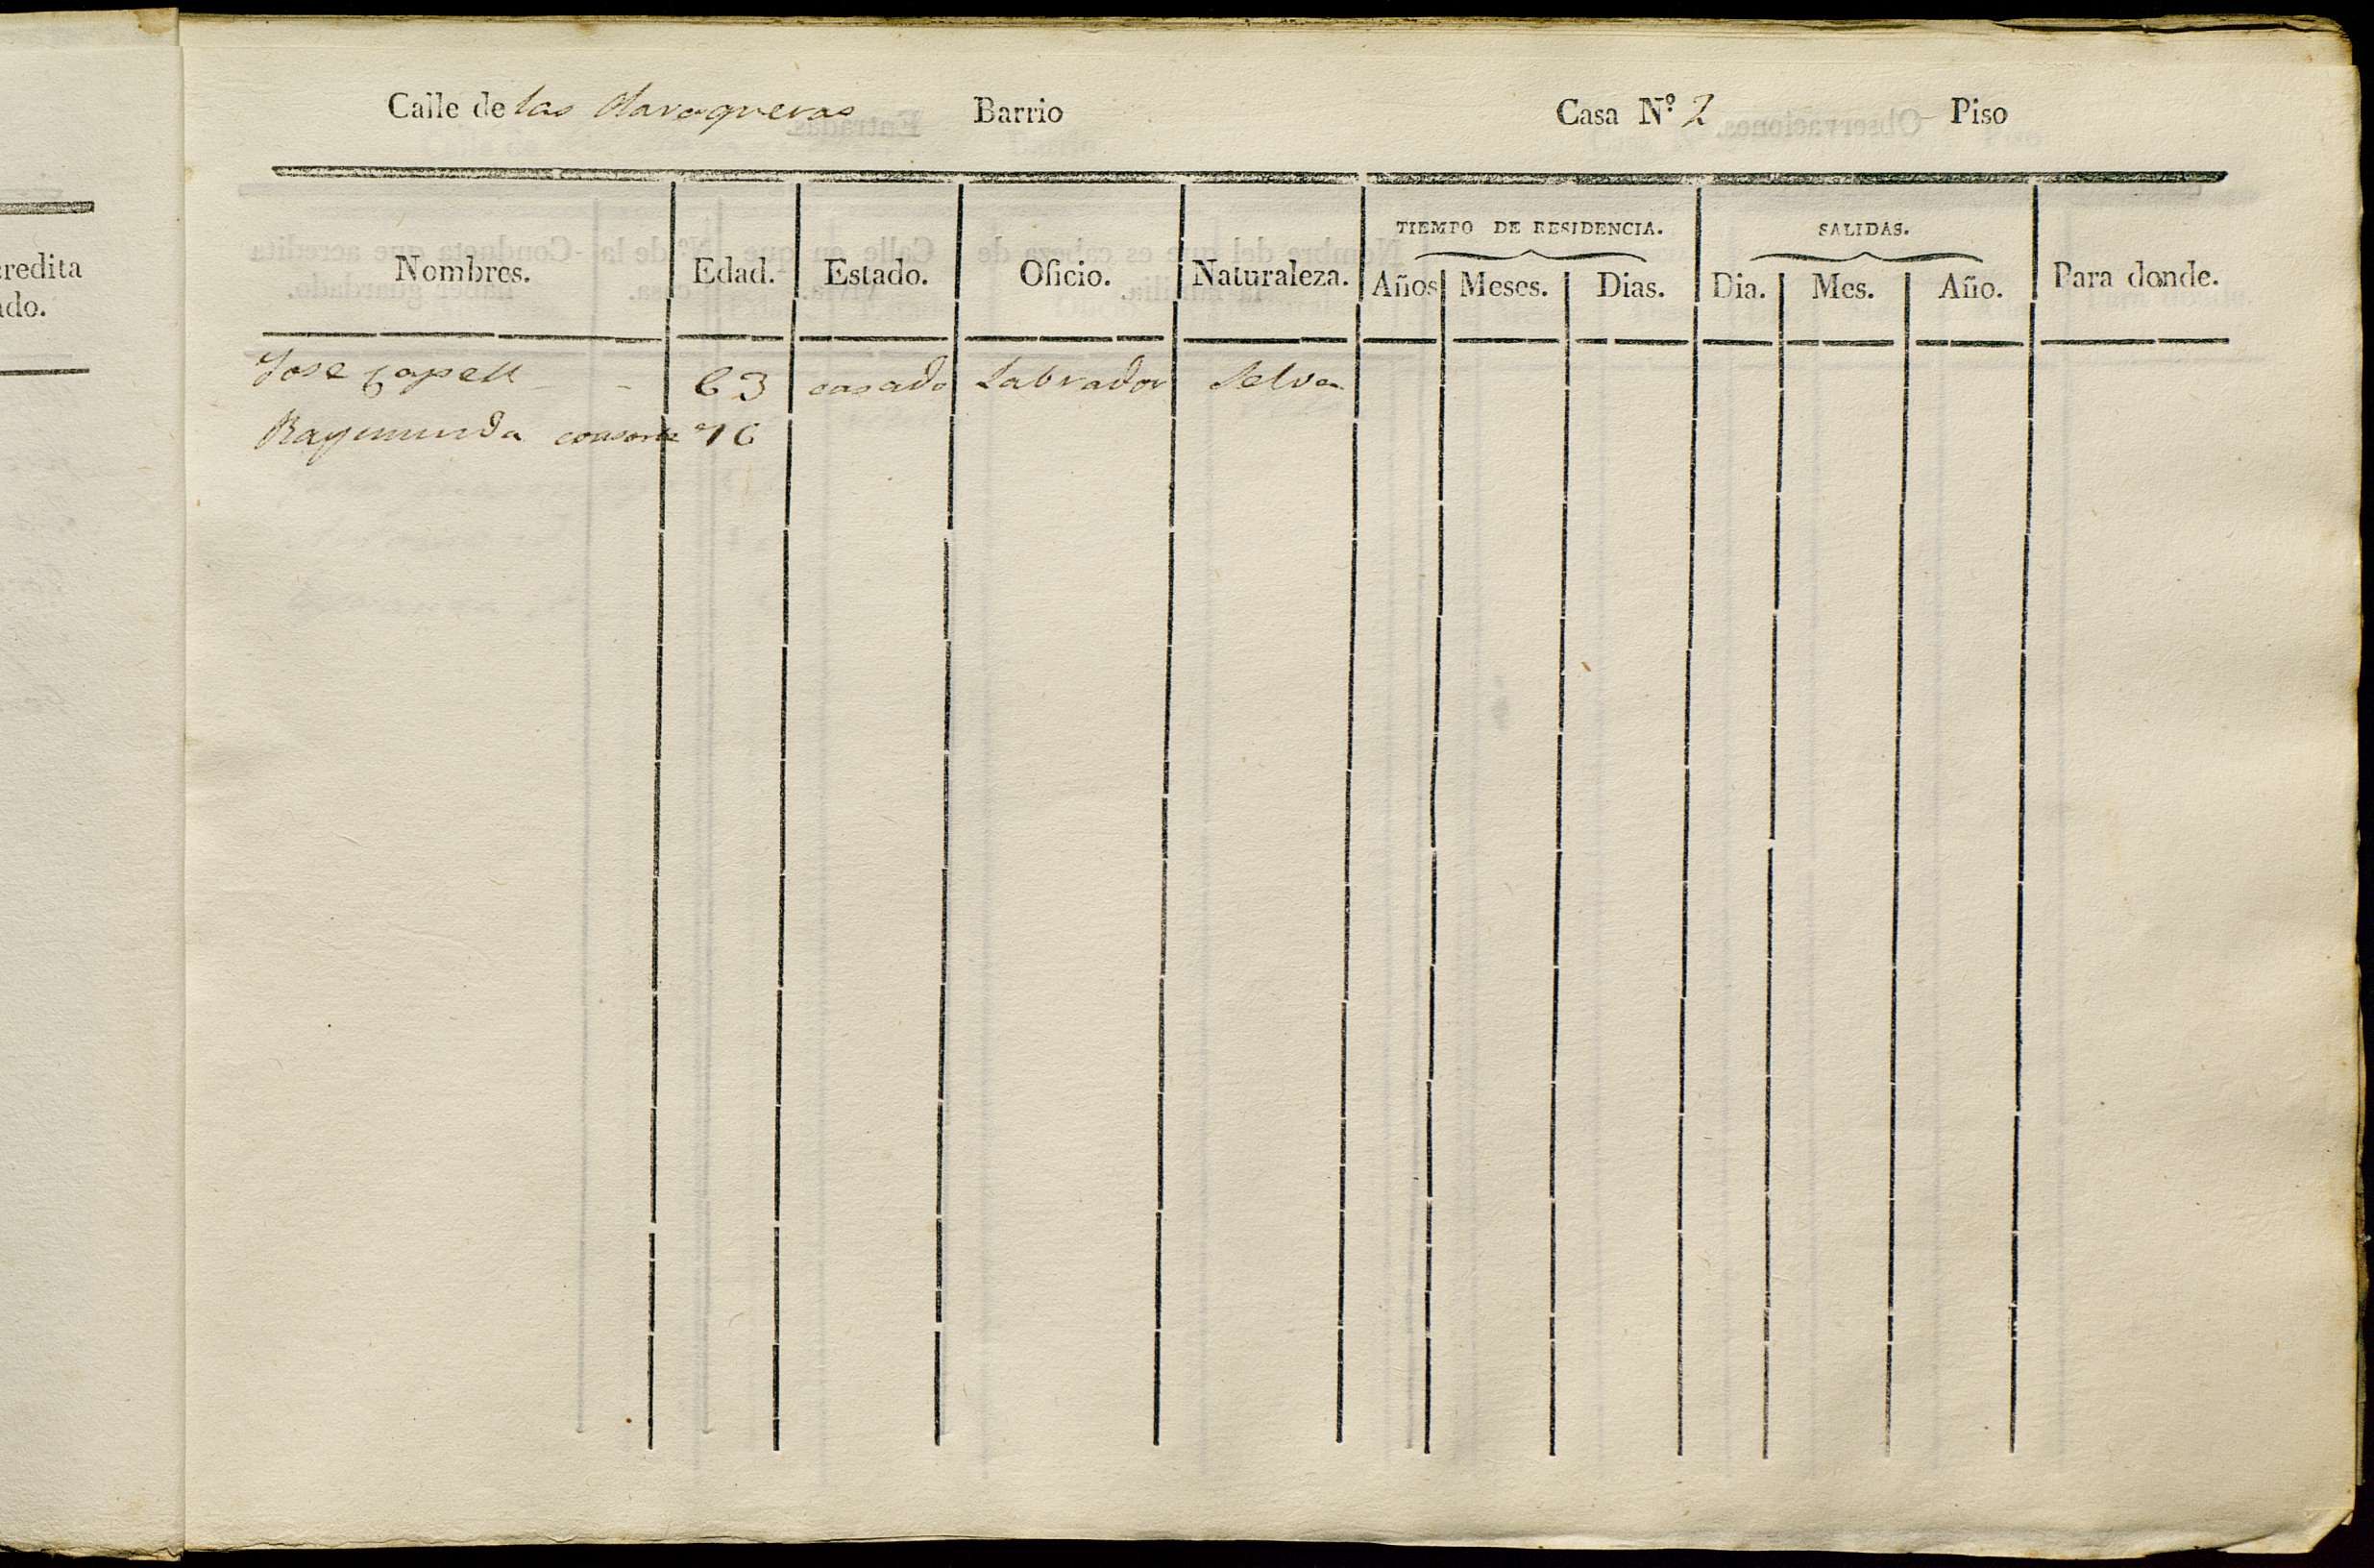 credita
ado.
Calle de las Baraqueras Barrio Casa N.º 2 Piso
TIEMPO DE RESIDENCIA. SALIDAS.
Nombres. Edad. Estado. Oficio. Naturaleza. Años Meses. Dias. Dia. Mes. Año. Para donde.
Jose Capell - 63 casado Labrador Selva
Raymunda consorte 76